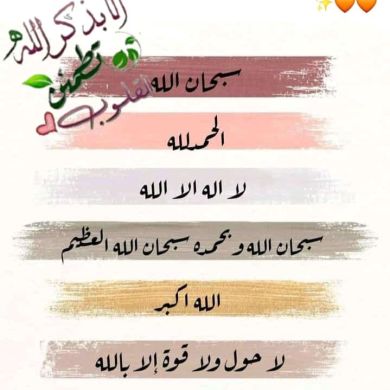 ألا بذكر الله
تطمئن
القلوب
سبحان الله
الحمدلله
لا اله الا الله
سبحان الله وبحمده سبحان الله العظيم
الله اكبر
لا حول ولا قوة إلا بالله